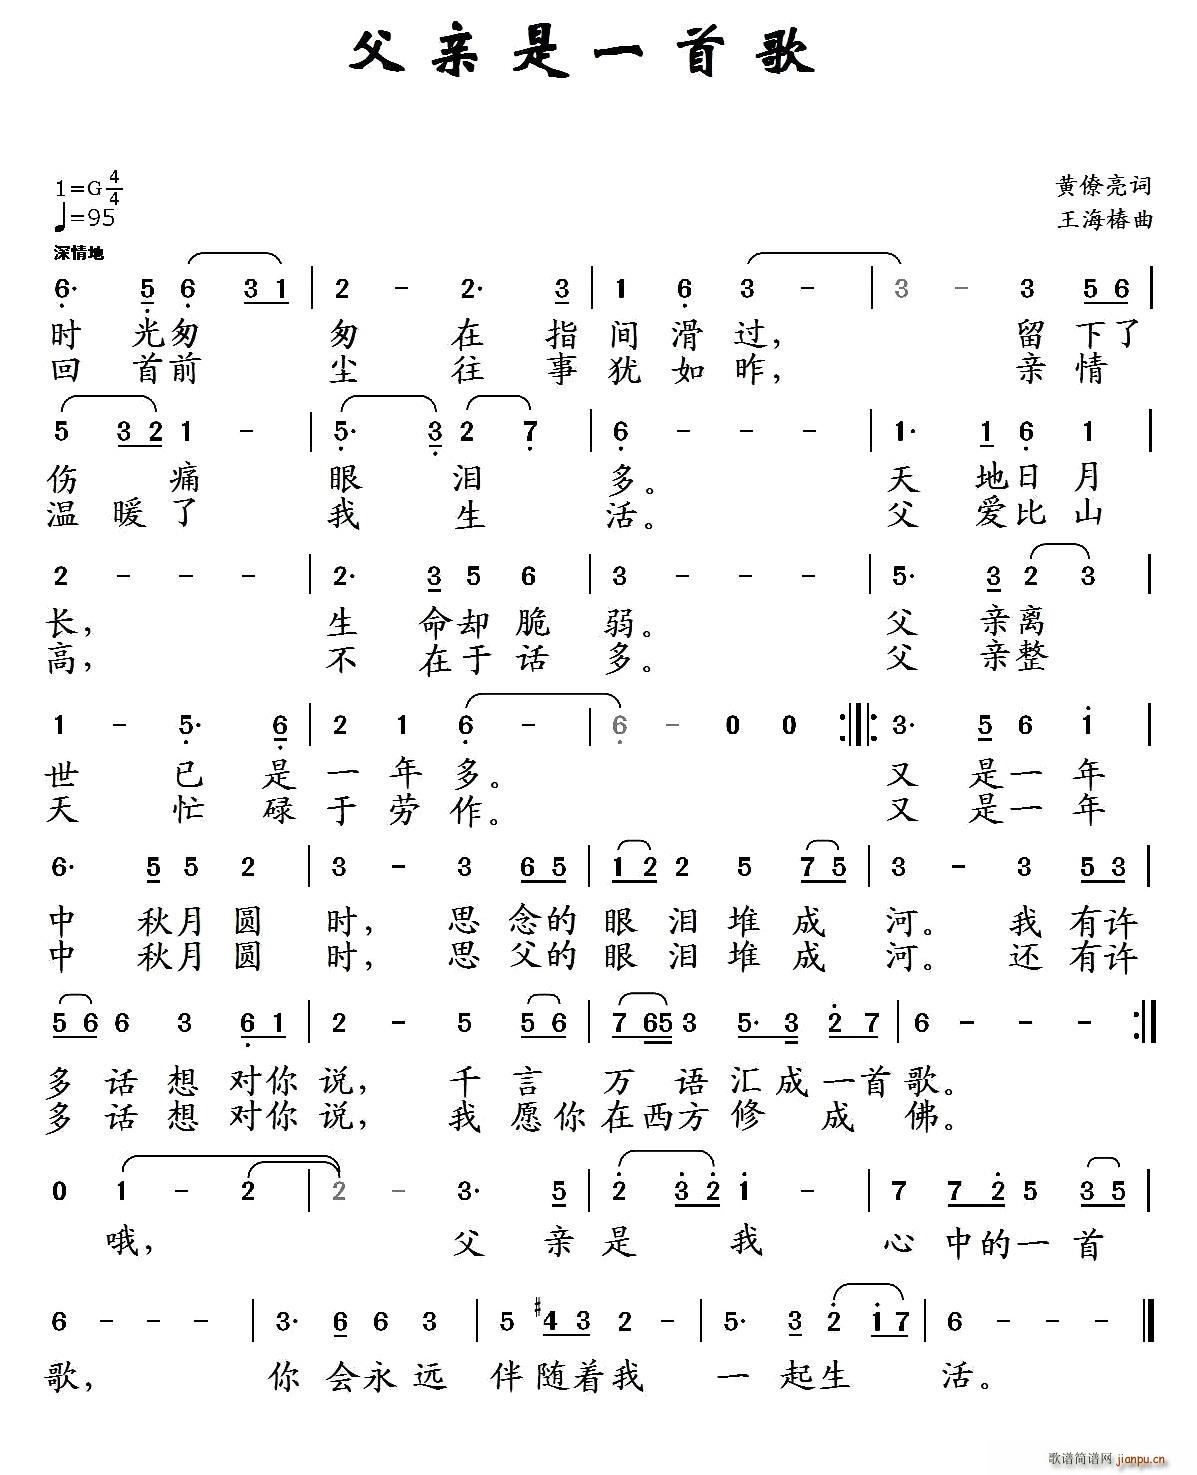 父亲是一首歌
1=G 4/4
♩=95
深情地
黄僚亮词
王海椿曲
6· 5 6 3 1 | 2 - 2· 3 | 1 6 3 - | 3 - 3 5 6 |
时光匆匆在指间滑过，留下了
回首前尘往事犹如昨，亲情
5 3 2 1 - | 5· 3 2 7 | 6 - - - | 1· 1 6 1 |
伤痛眼泪多。天地日月
温暖了我生活。父爱比山
2 - - - | 2· 3 5 6 | 3 - - - | 5· 3 2 3 |
长，生命却脆弱。父亲离
高，不在于话多。父亲整
1 - 5· 6 | 2 1 6 - | 6 - 0 0 :||: 3· 5 6 i |
世已是一年多。又是一年
天忙碌于劳作。又是一年
6· 5 5 2 | 3 - 3 6 5 | 1 2 2 5 7 5 | 3 - 3 5 3 |
中秋月圆时，思念的眼泪堆成河。我有许
中秋月圆时，思父的眼泪堆成河。还有许
5 6 6 3 6 1 | 2 - 5 5 6 | 7 6 5 3 5· 3 2 7 | 6 - - - :||
多话想对你说，千言万语汇成一首歌。
多话想对你说，我愿你在西方修成佛。
0 1 - 2 | 2 - 3· 5 | 2 3 2 i - | 7 7 2 5 3 5 |
哦，父亲是我心中的一首
6 - - - | 3· 6 6 3 | 5 #4 3 2 - | 5· 3 2 i 7 | 6 - - - ||
歌，你会永远伴随着我一起生活。
歌谱简谱网 jianpu.cn